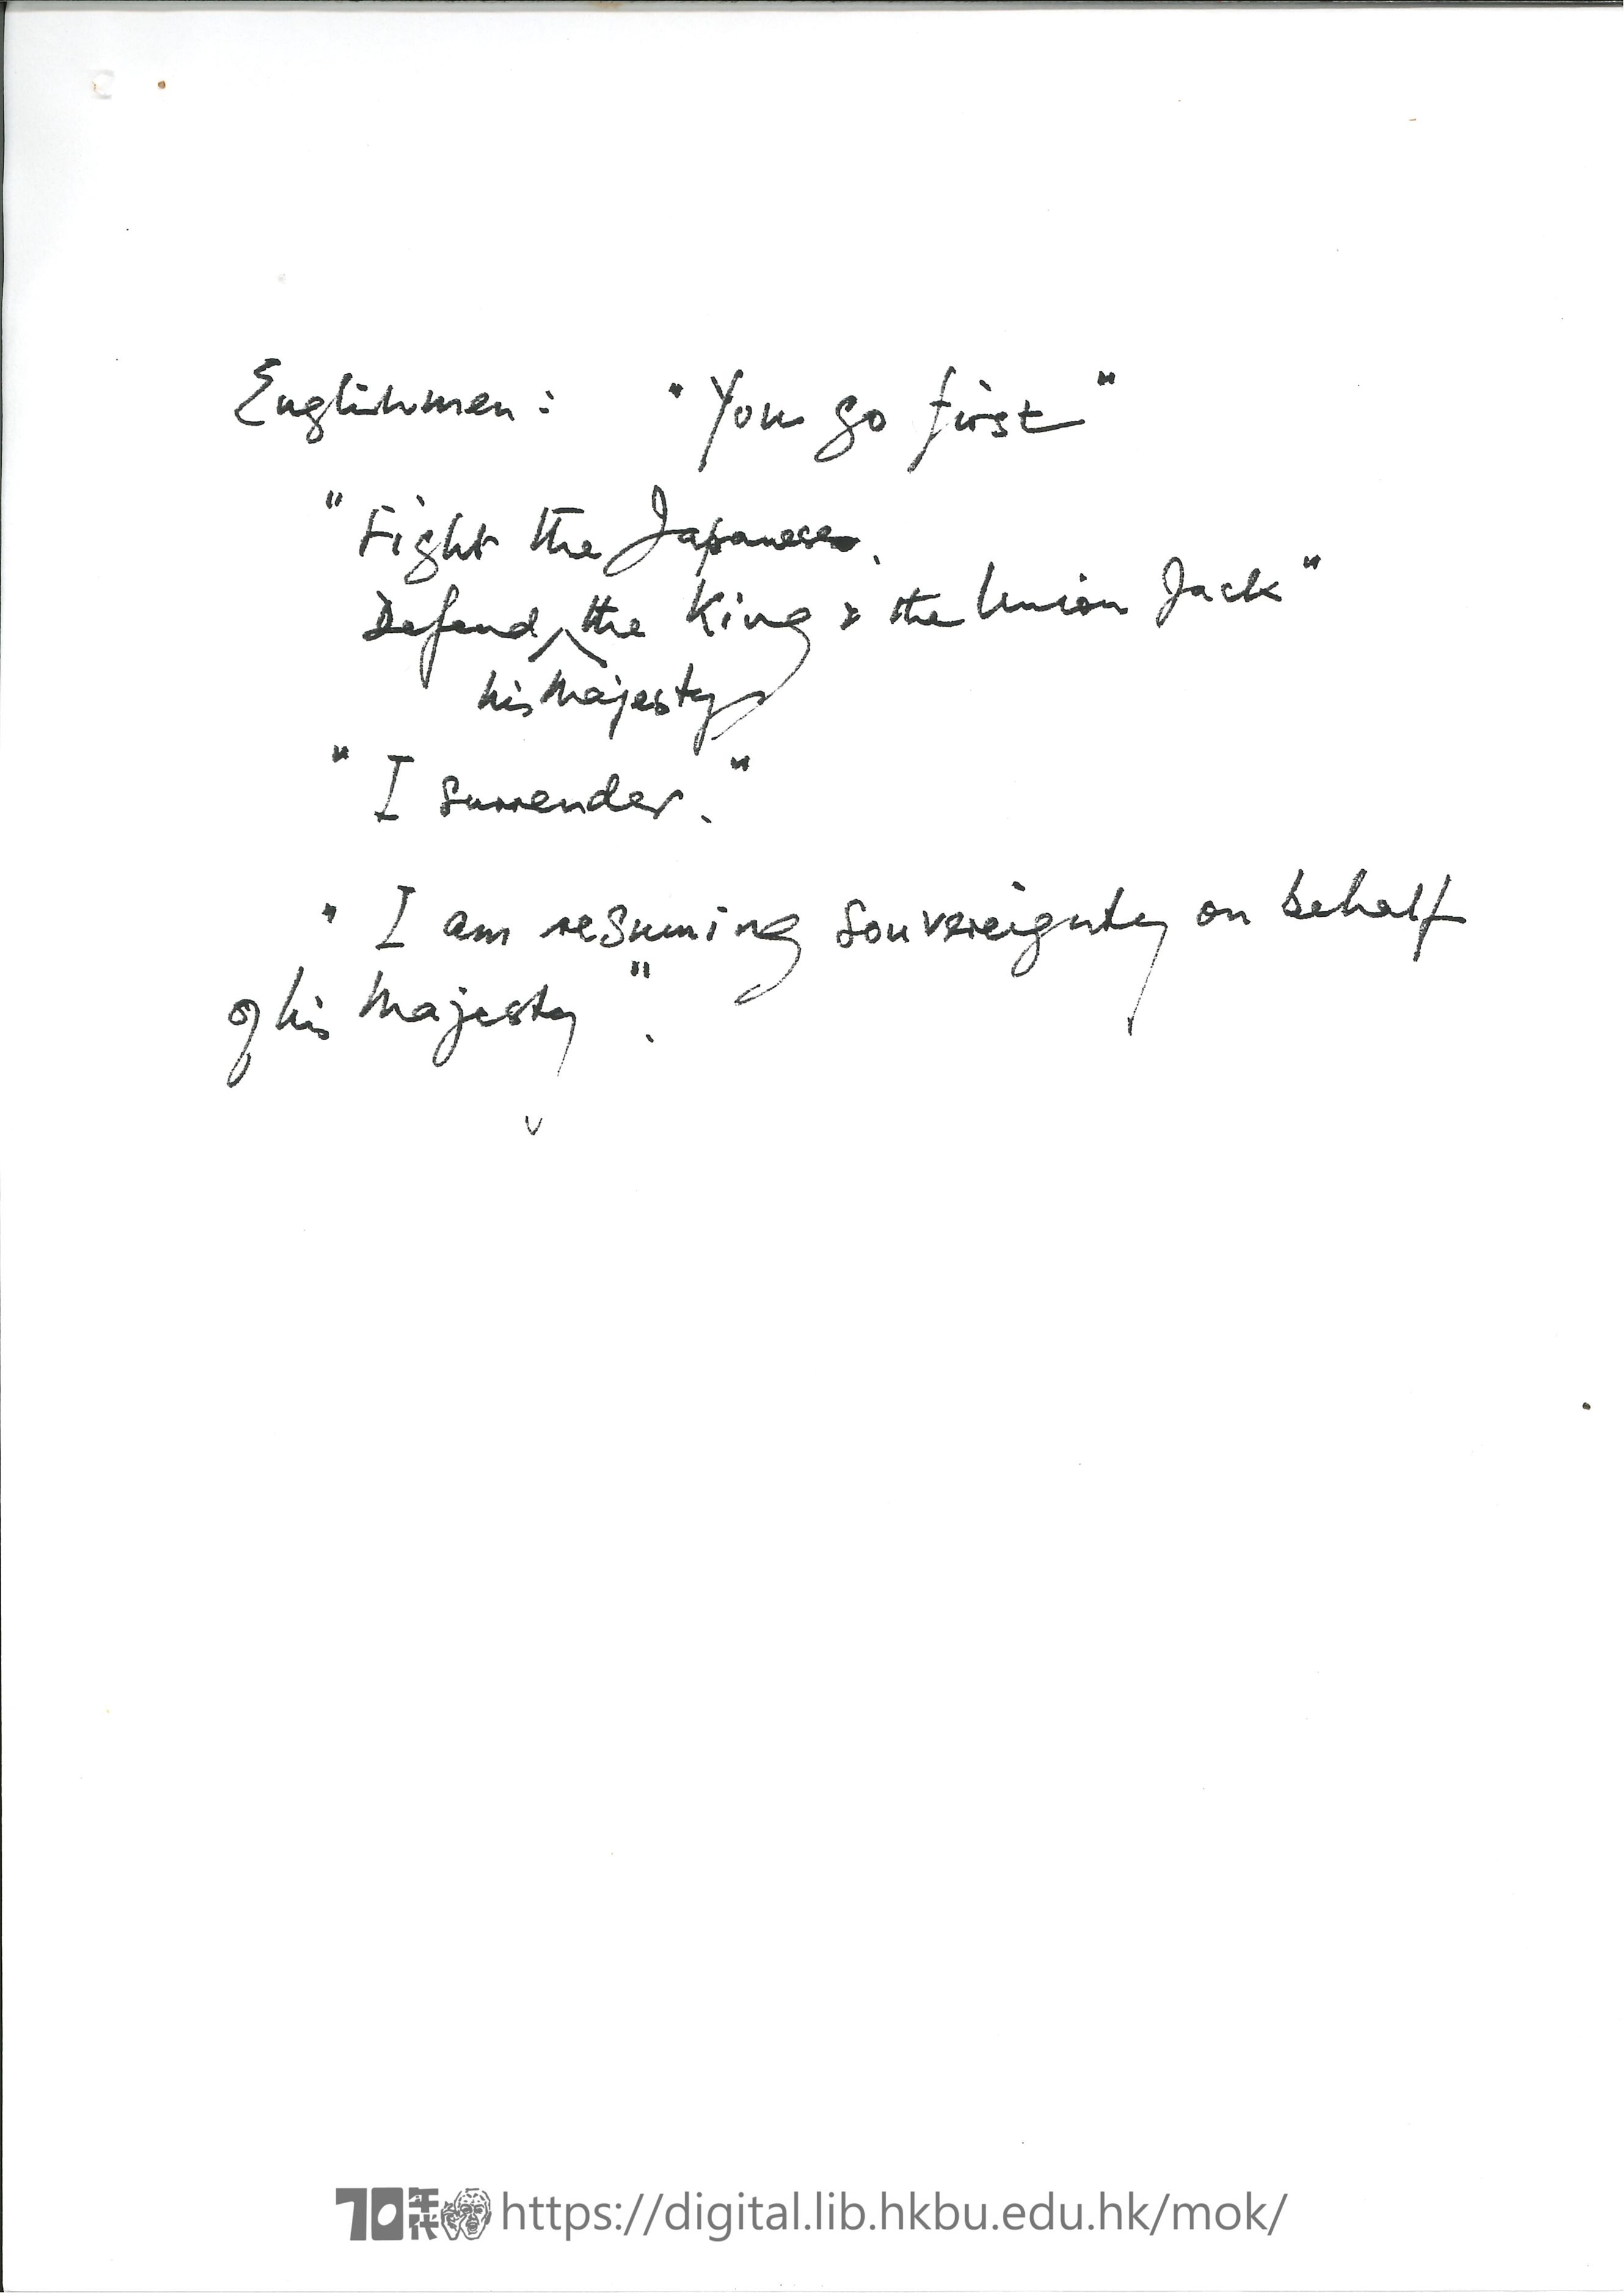 Englishmen: "You go first"
"Fight the Japanese.
Defend ^ the King & the Union Jack"
his Majesty
"I surrender."
"I am resuming souvereignty on behalf
of his Majesty".
70年代 https://digital.lib.hkbu.edu.hk/mok/